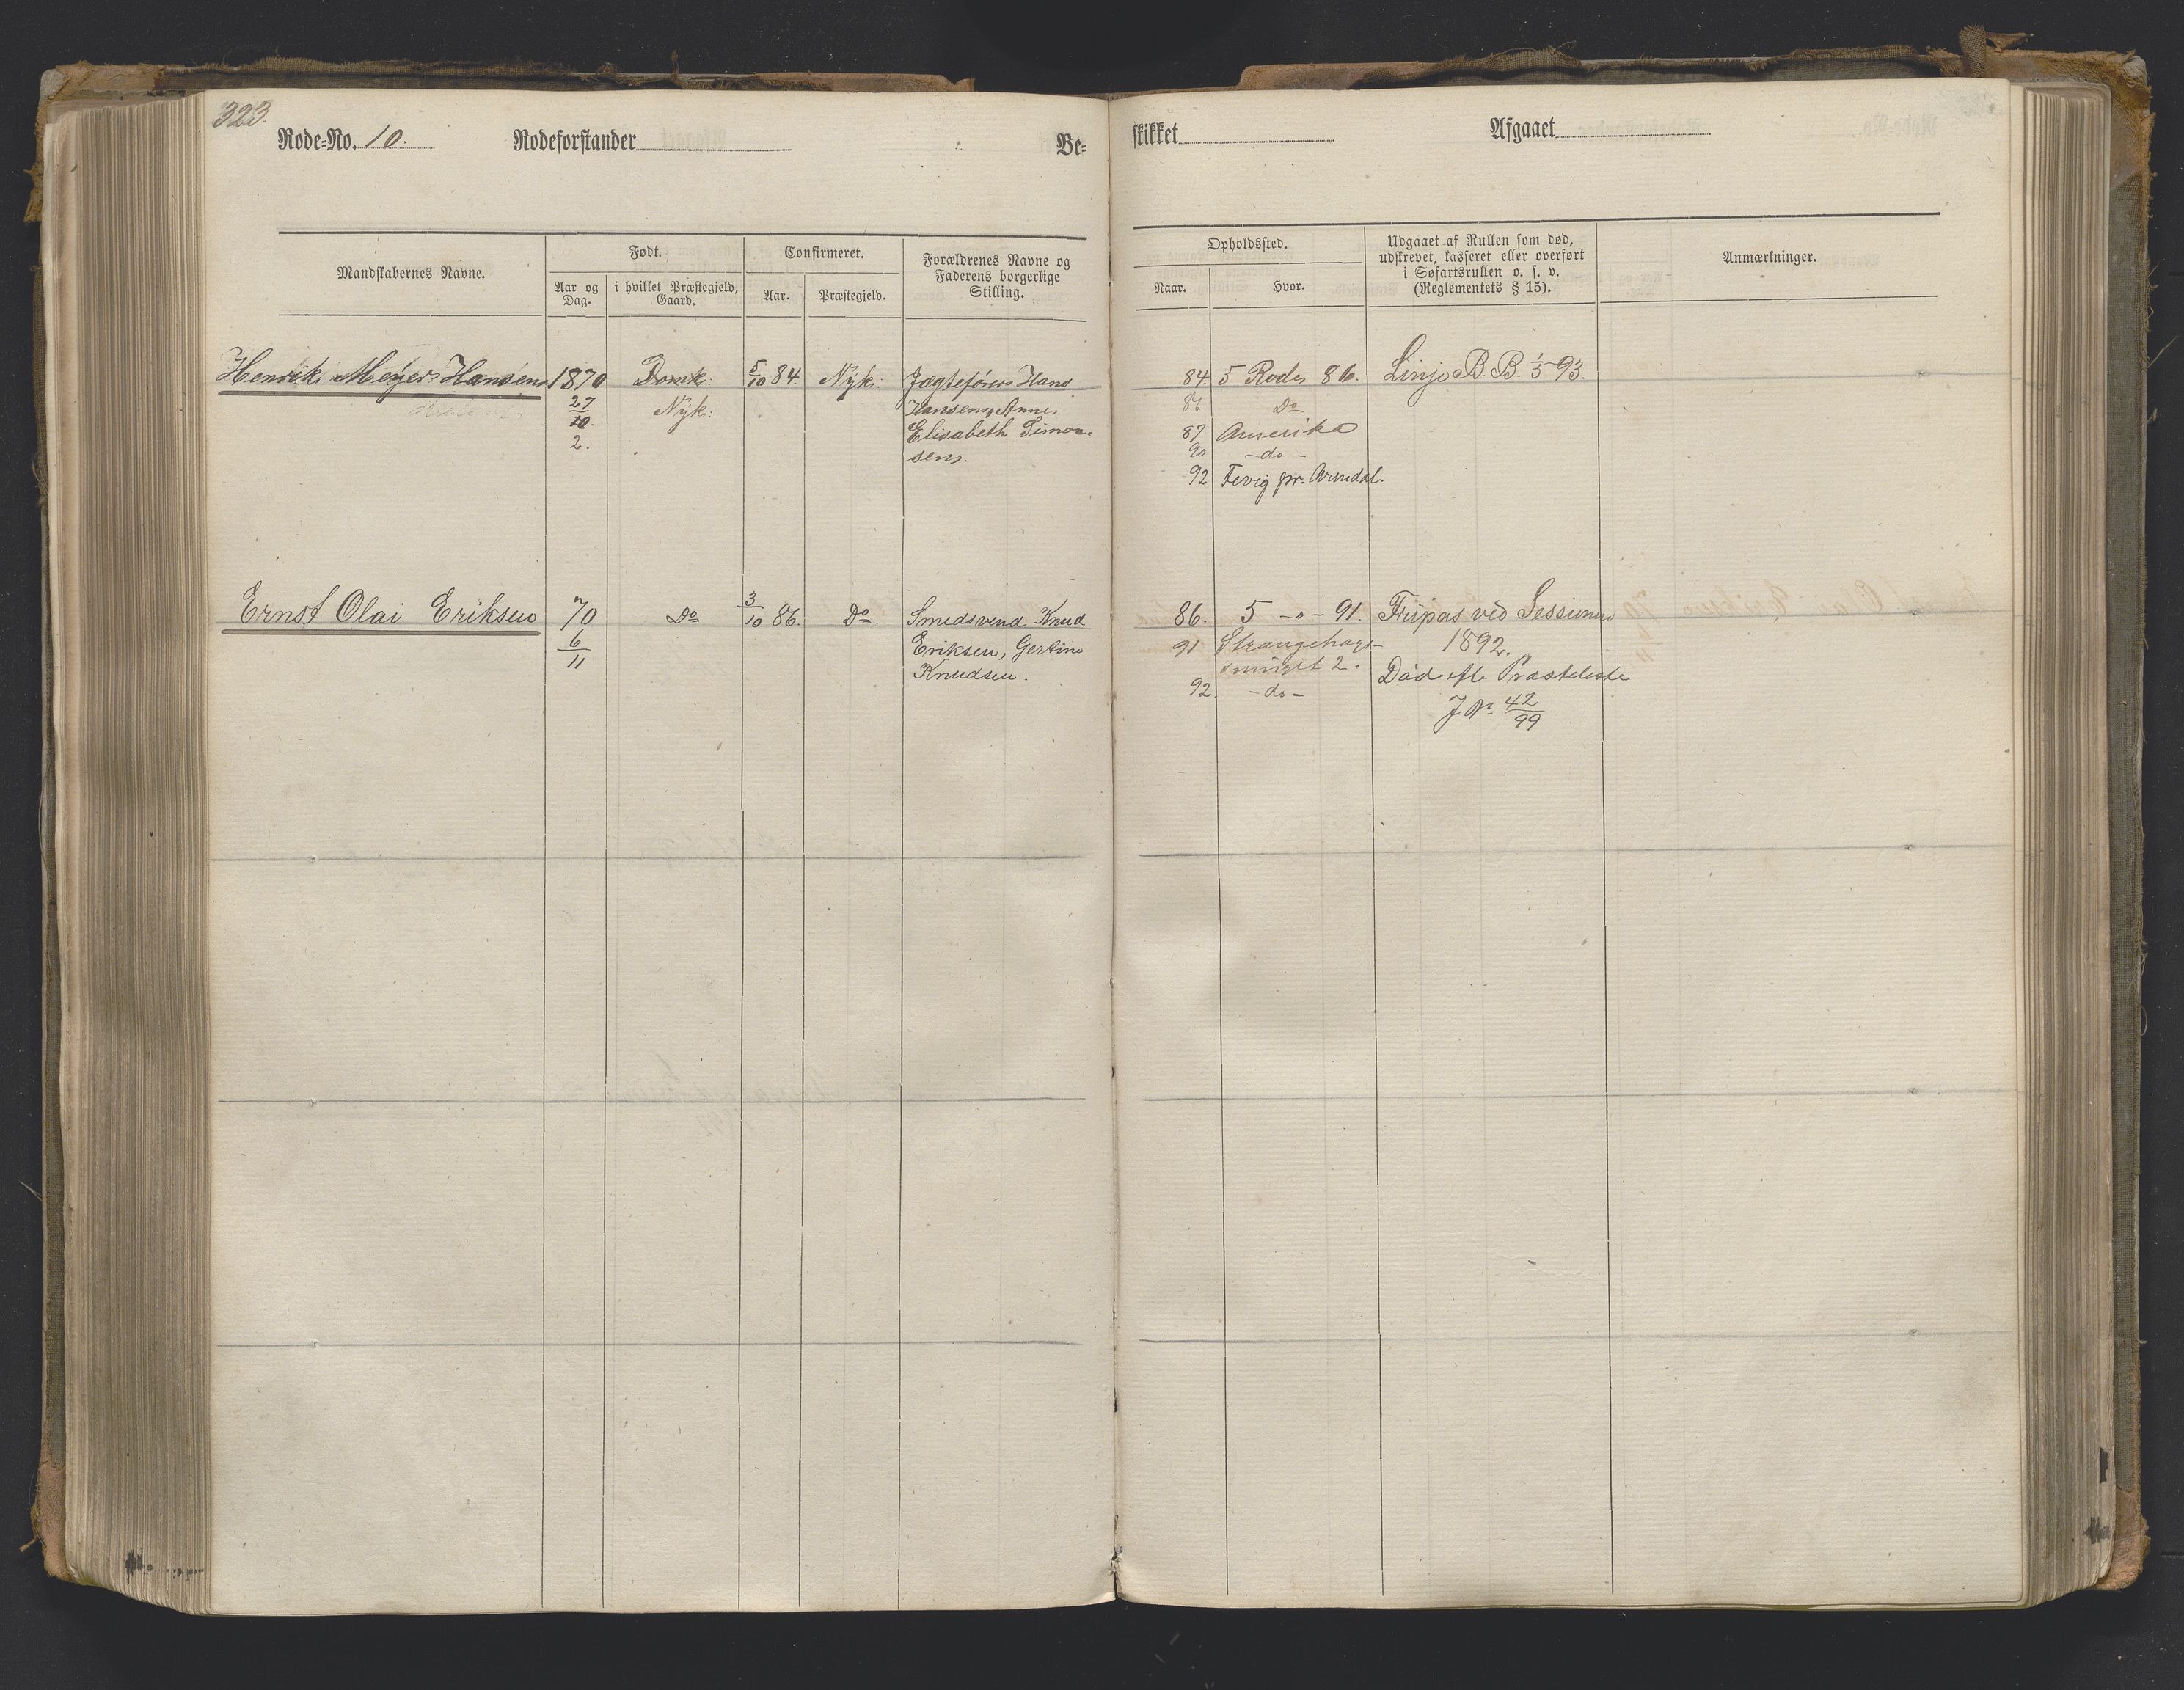 323.
Rode-No. 10. Rodeforstander Be-
skikket Afgaaet
Mandskabernes Navne.
Født.
Aar og
Dag.
i hvilket Præstegjeld,
Gaard.
Confirmeret.
Aar.
Præstegjeld.
Forældrenes Navne og
Faderens borgerlige
Stilling.
Opholdssted.
Naar.
Hvor.
Udgaaet af Rullen som død,
udskrevet, kasseret eller overført
i Søfartsrullen o. s. v.
(Reglementets § 15).
Anmærkninger.
Henrik Meyer Hansen
1870
27
10.
2.
Domk:
Nyk:
5/10 84.
Nyk:
Jægtefører Hans
Hansen, Anne
Elisabeth Simon-
sen.
84. 5 Rode 86.
86 Do
87 Amerika
90 -do-
92 Fevig pr. Arendal.
Linje B. B. 1/5 93.
Ernst Olai Eriksen
70
6
11
Do
3/10 86.
Do.
Smedsvend Knud
Eriksen, Gertine
Knudsen.
86. 5 -"- 91.
91 Strangehage-
smuget 2.
92. -do-
Fripas ved Sessionen
1892.
Död efl. Præsteliste
J No 42/99